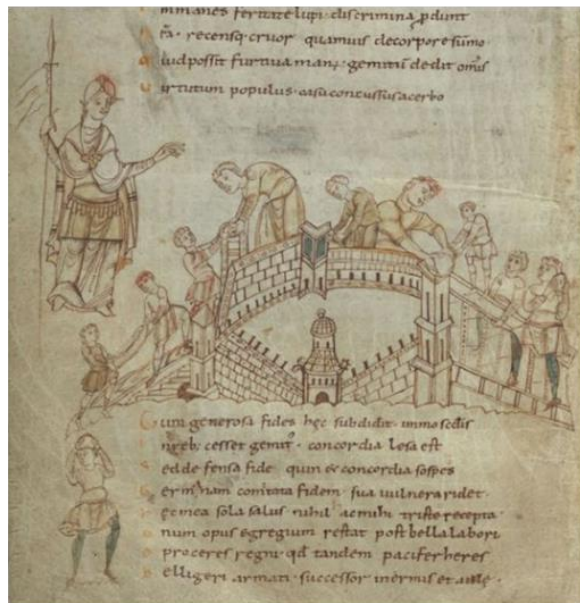 mmanes feritate lupi discrimina pdunt
recensq; cruor quamuis de corpore sūmo
uid possit furtiua man; gemitū dedit om̄is
irtutum populus casu concussus acerbo
Cum generosa fides hęc subdidit immo sc̄dis
reb; cesset gemit; concordia lęsa est
sed defensa fide quin et concordia sospes
Germanam comitata fidem sua uulnera ridet
ęc mea sola salus nihil ac mihi triste recepta
num opus egregium restat post bella labori
o proceres regni qd̄ tandem pacifer heres
Belligeri armatę successor inermis et aulę